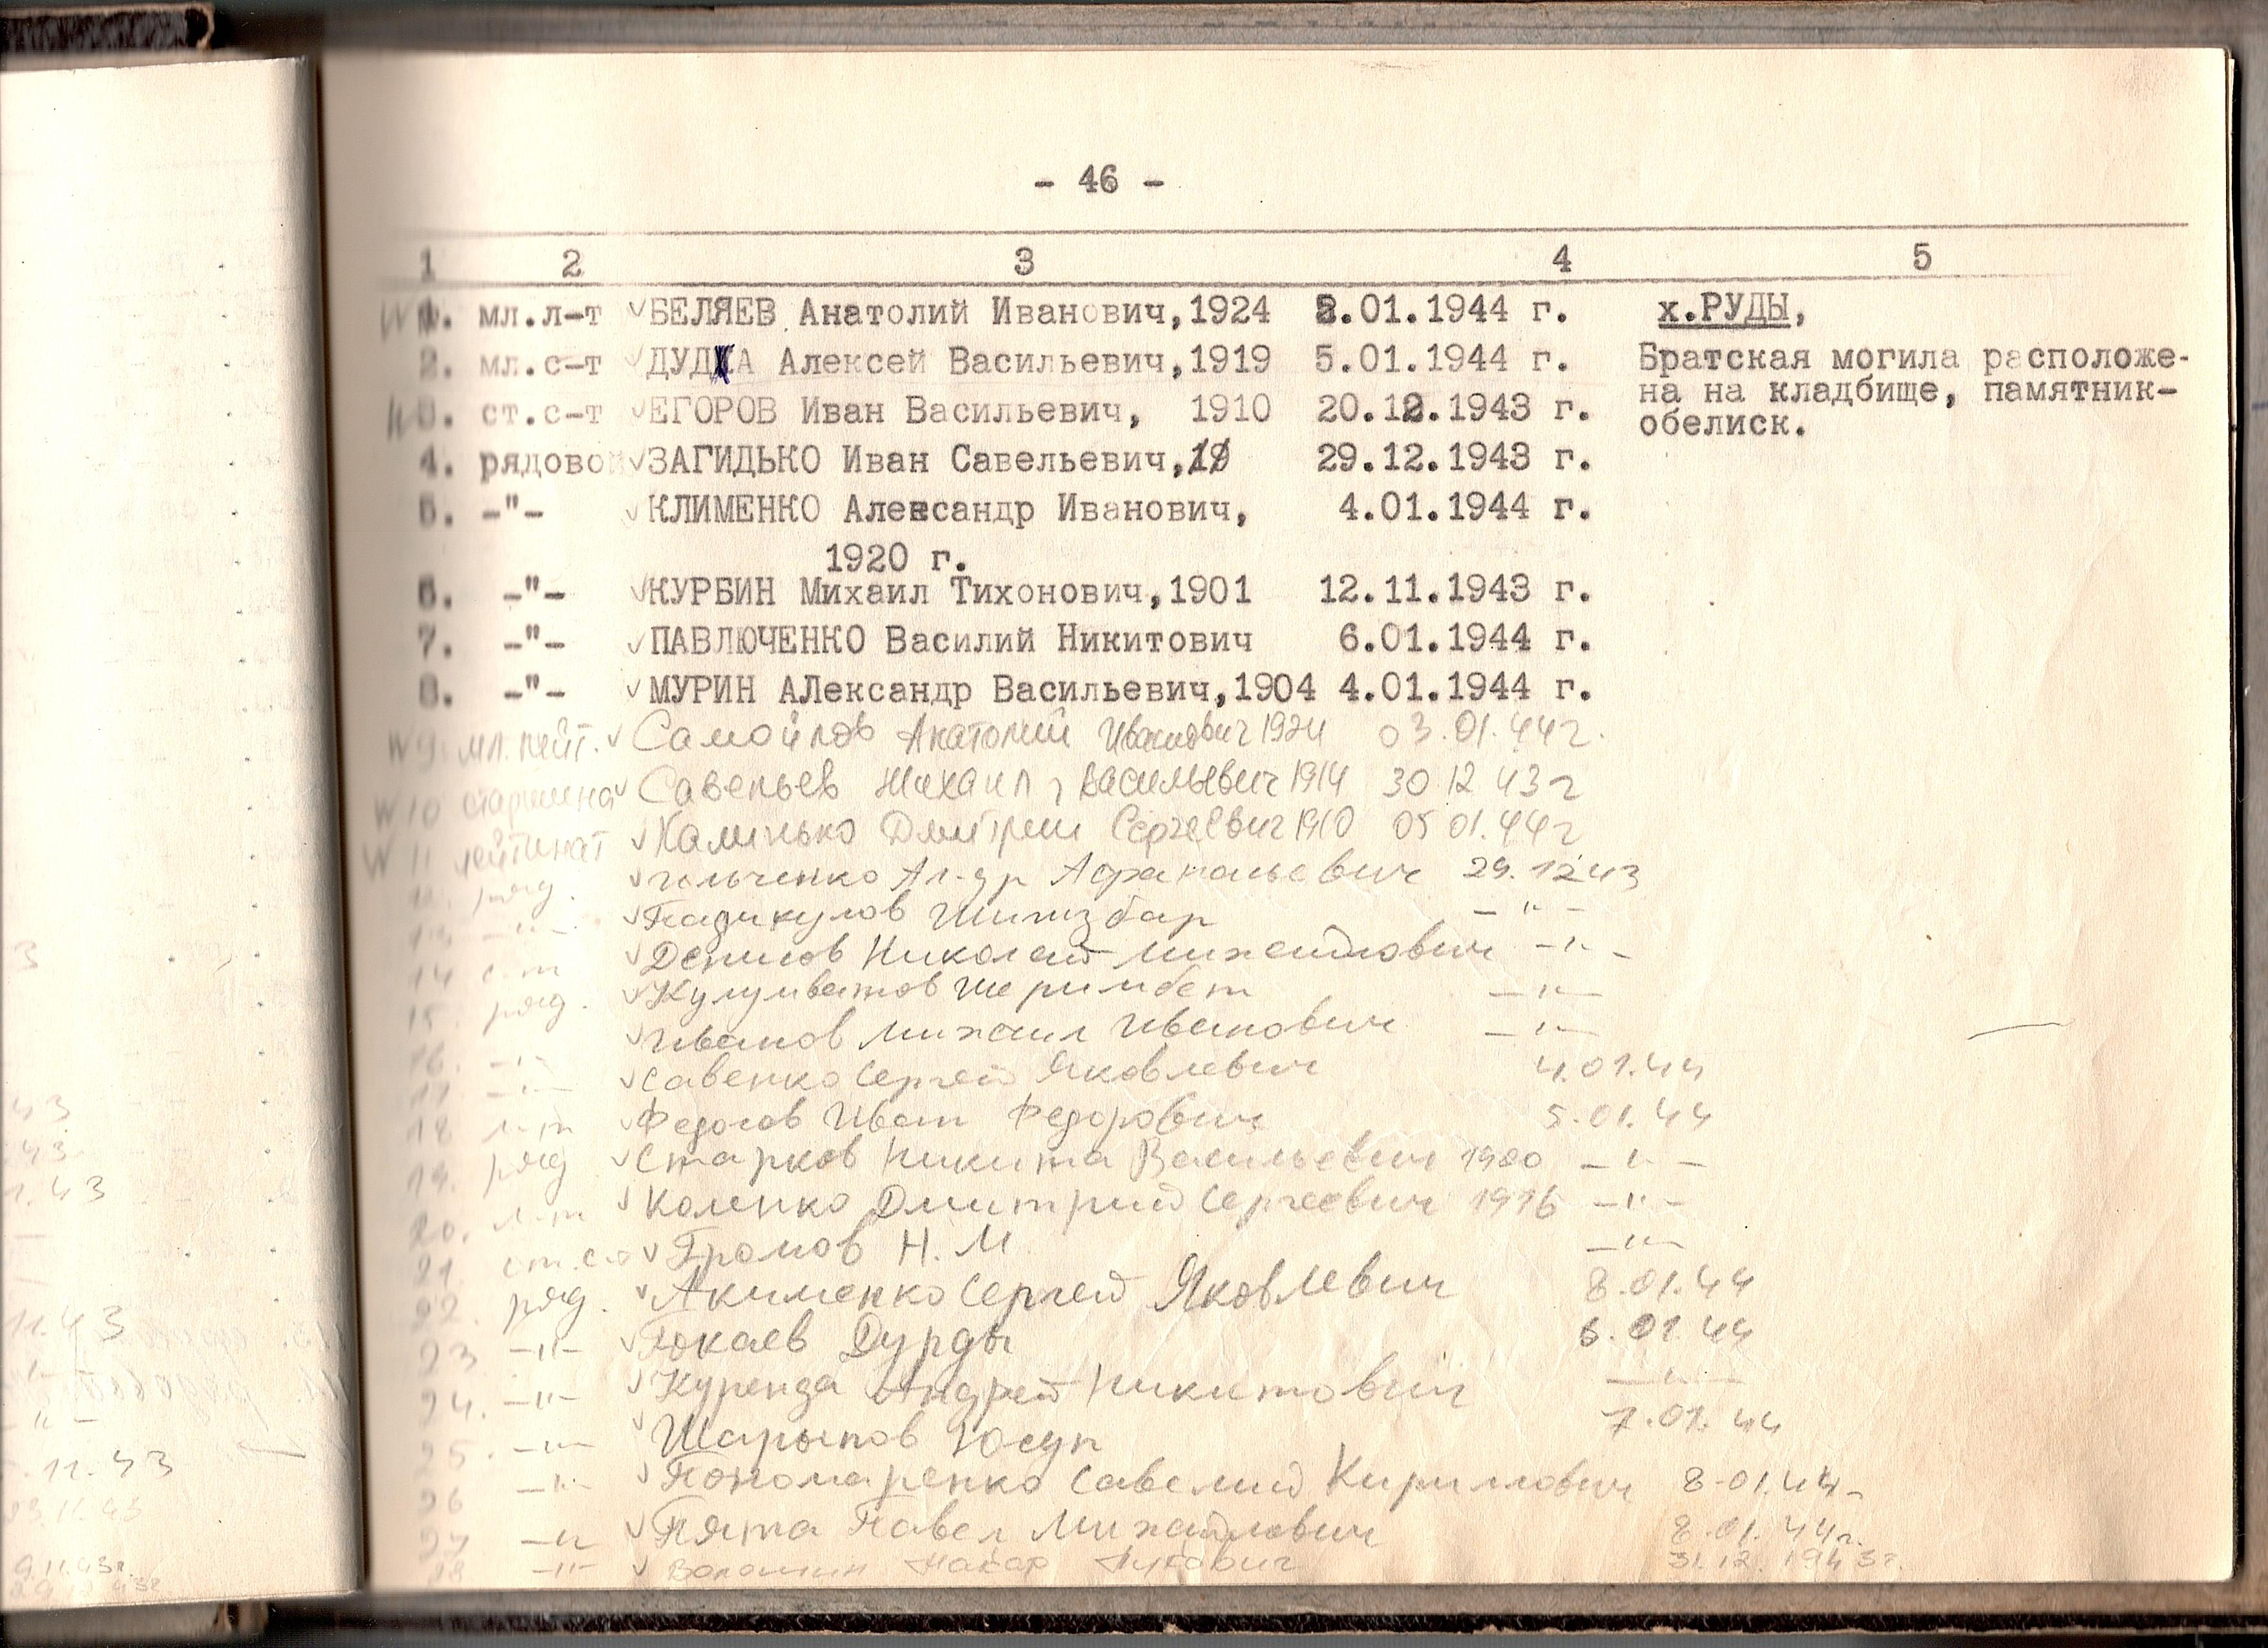 - 46 -
1 2 3 4 5
1. мл.л-т БЕЛЯЕВ Анатолий Иванович,1924 8.01.1944 г. х.РУДЫ,
2. мл.с-т ДУДКА Алексей Васильевич,1919 5.01.1944 г. Братская могила расположе-
на на кладбище, памятник-
3. ст.с-т ЕГОРОВ Иван Васильевич, 1910 20.12.1943 г.
обелиск.
4. рядовой ЗАГИДЬКО Иван Савельевич, 29.12.1943 г.
5. -"- КЛИМЕНКО Александр Иванович, 4.01.1944 г.
1920 г.
6. -"- КУРБИН Михаил Тихонович,1901 12.11.1943 г.
7. -"- ПАВЛЮЧЕНКО Василий Никитович 6.01.1944 г.
8. -"- МУРИН АЛександр Васильевич,1904 4.01.1944 г.
9 мл. лейт. Самойлов Анатолий Иванович 1924 03.01.44г.
10 старшина Савельев Михаил Васильевич 1914 30 12 43г
11 лейтинат Калинько Дмитрии Сергеевич 1910 05 01.44г
12. ряд. Ал-др 29.12 43
13 -"- -"-
14 с-т Денисов Николай Михайлович -"-
15. ряд. -"-
16. -"- Иванов Михаил Иванович -"-
17 -"- Савенко Сергей Яковлевич 4.01.44
18 л-т Иван Федорович 5.01.44
19. ряд Старков Никита Васильевич -"-
20. л-т Коленко Дмитрий Сергеевич 1916 -"-
21. Громов Н. М -"-
22. ряд. Акименко Сергей Яковлевич 8.01.44
23 -"- Дурды 6.01 44
24. -"- Куренда Андрей Никитович -"-
25. -"- Шарыпов Юсуп 7.01.44
26 -"- Пономаренко Савелий Кириллович 8.01.44
27 -"- Пята Павел Михайлович 8.01.44г.
28 -"- Макар 31.12.1943г.
11.43